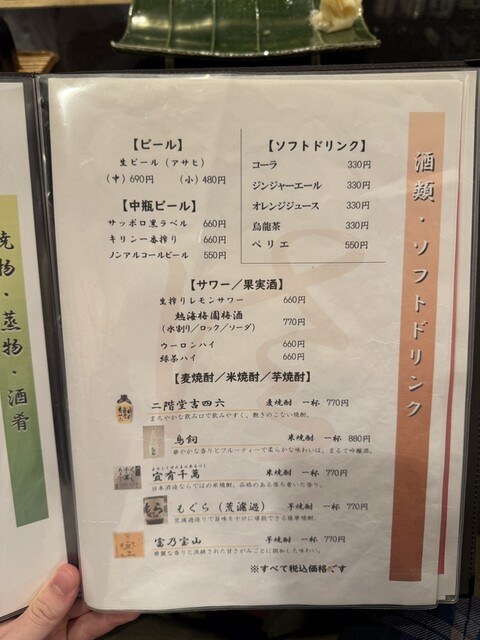 焼物・蒸物・酒肴
酒類・ソフトドリンク
【ビール】
生ビール（アサヒ）
（中）690円　（小）480円
【中瓶ビール】
サッポロ黒ラベル　660円
キリン一番搾り　660円
ノンアルコールビール　550円
【ソフトドリンク】
コーラ　330円
ジンジャーエール　330円
オレンジジュース　330円
烏龍茶　330円
ペリエ　550円
【サワー／果実酒】
生搾りレモンサワー　660円
熱海梅園梅酒　770円
（水割り／ロック／ソーダ）
ウーロンハイ　660円
緑茶ハイ　660円
【麦焼酎／米焼酎／芋焼酎】
二階堂吉四六　麦焼酎　一杯　770円
まろやかな飲み口で飲みやすく、飽きのこない焼酎。
鳥飼　米焼酎　一杯　880円
華やかな香りとフルーティーで柔らかな味わいは、まるで吟醸酒。
宜有千萬　米焼酎　一杯　770円
日本酒造ならではの米焼酎。品格のある落ち着いた香り。
もぐら（荒濾過）　芋焼酎　一杯　770円
荒濾過造りで旨味を十分に堪能できる薩摩焼酎。
富乃宝山　芋焼酎　一杯　770円
華麗な香りと洗練された甘さがみごとに調和した味わい。
※すべて税込価格です